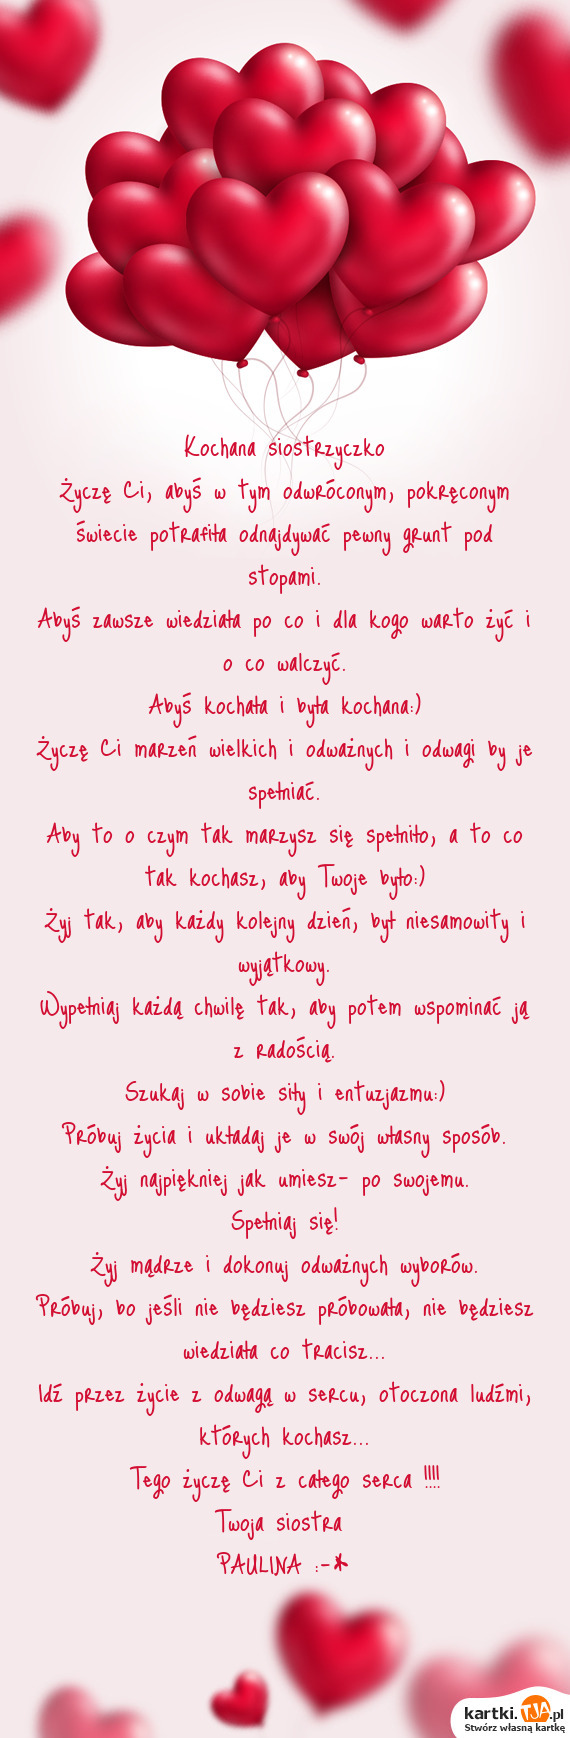 Kochana siostrzyczko
Życzę Ci, abyś w tym odwróconym, pokręconym
świecie potrafiła odnajdywać pewny grunt pod
stopami.
Abyś zawsze wiedziała po co i dla kogo warto żyć i
o co walczyć.
Abyś kochała i była kochana:)
Życzę Ci marzeń wielkich i odważnych i odwagi by je
spełniać.
Aby to o czym tak marzysz się spełniło, a to co
tak kochasz, aby Twoje było:)
Żyj tak, aby każdy kolejny dzień, był niesamowity i
wyjątkowy.
Wypełniaj każdą chwilę tak, aby potem wspominać ją
z radością.
Szukaj w sobie siły i entuzjazmu:)
Próbuj życia i układaj je w swój własny sposób.
Żyj najpiękniej jak umiesz- po swojemu.
Spełniaj się!
Żyj mądrze i dokonuj odważnych wyborów.
Próbuj, bo jeśli nie będziesz próbowała, nie będziesz
wiedziała co tracisz...
Idź przez życie z odwagą w sercu, otoczona ludźmi,
których kochasz...
Tego życzę Ci z całego serca !!!!
Twoja siostra
PAULINA :-*
kartki.TJA.pl
Stwórz własną kartkę